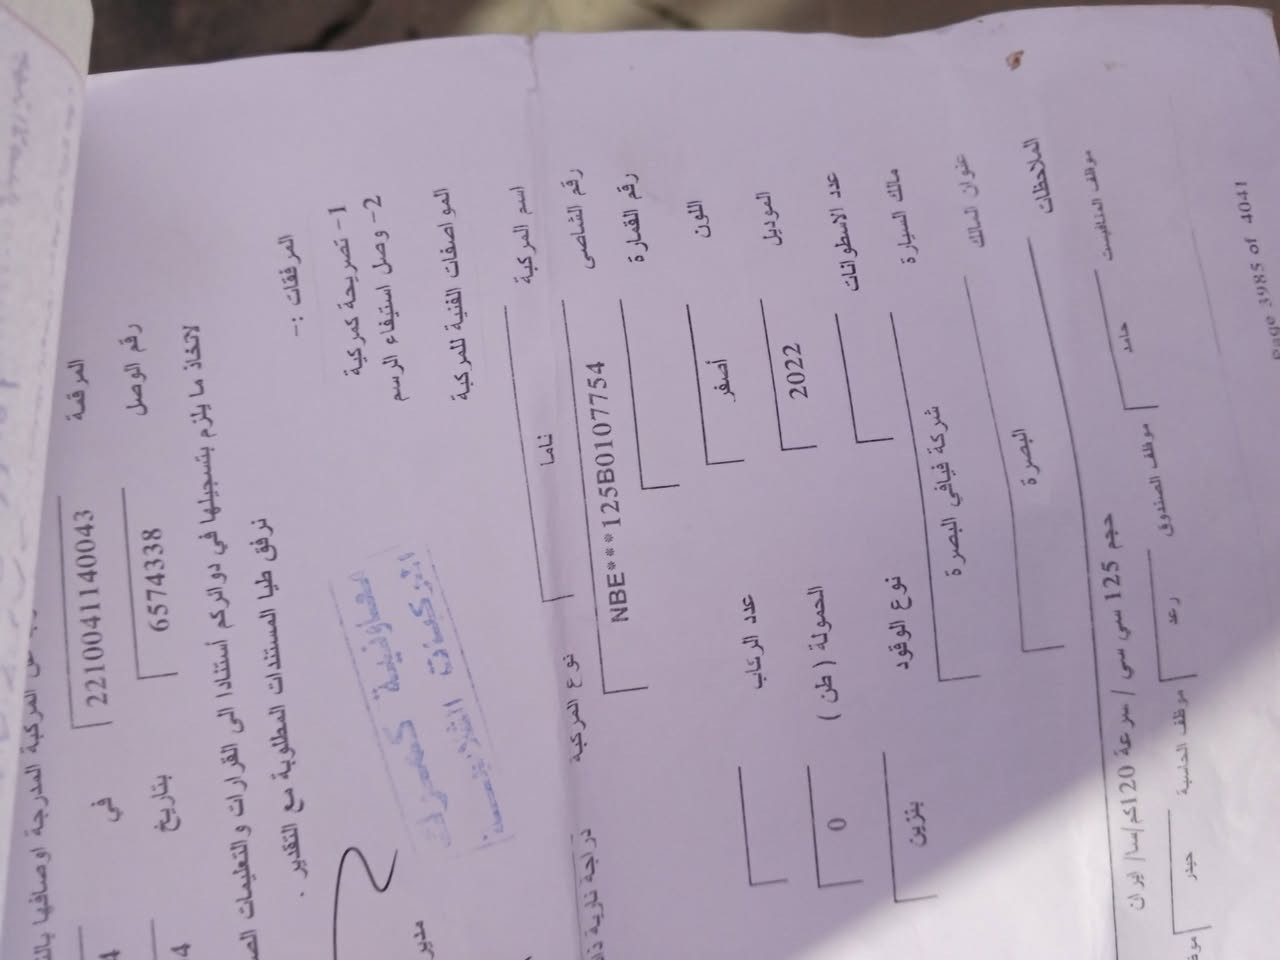 المركبة المدرجة اوصافها
المرقمة 2210041140043 في
رقم الوصل 6574338 بتاريخ
لاتخاذ ما يلزم بتسجيلها في دوائركم أستنادا الى القرارات والتعليمات
نرفق طيا المستندات المطلوبة مع التقدير .
المرفقات :-
1- تصريحة كمركية
2- وصل استيفاء الرسم
مدير
المواصفات الفنية للمركبة
اسم المركبة ناما نوع المركبة دراجة نارية
رقم الشاصي NBE***125B0107754
رقم القمارة
اللون أصفر عدد الركاب
الموديل 2022 الحمولة ( طن ) 0
عدد الاسطوانات نوع الوقود بنزين
مالك السيارة شركة فيافي البصرة
عنوان المالك البصرة
الملاحظات حجم 125 سي سي / سرعة 120كم/سا/ ايران
موظف المنافيست حامد موظف الصندوق رعد موظف الحاسبة حيدر
Page 3985 of 4041